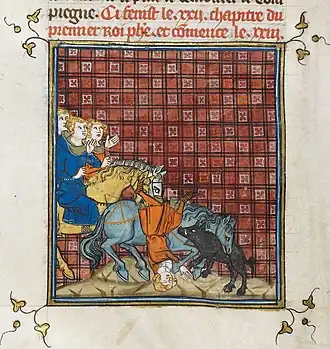 piegne. Ci fenist le .xxii. chapitre du
premier Roi phe. et comence le .xxiii.